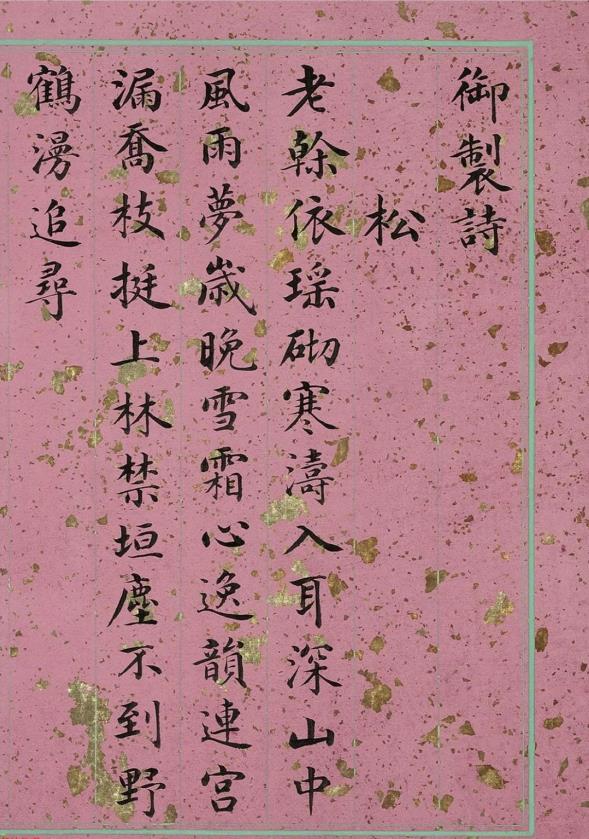 御製詩
松
老榦依瑶砌寒濤入耳深山中
風雨夢歳晚雪霜心逸韻連宫
漏喬枝挺上林禁垣塵不到野
鶴漫追尋